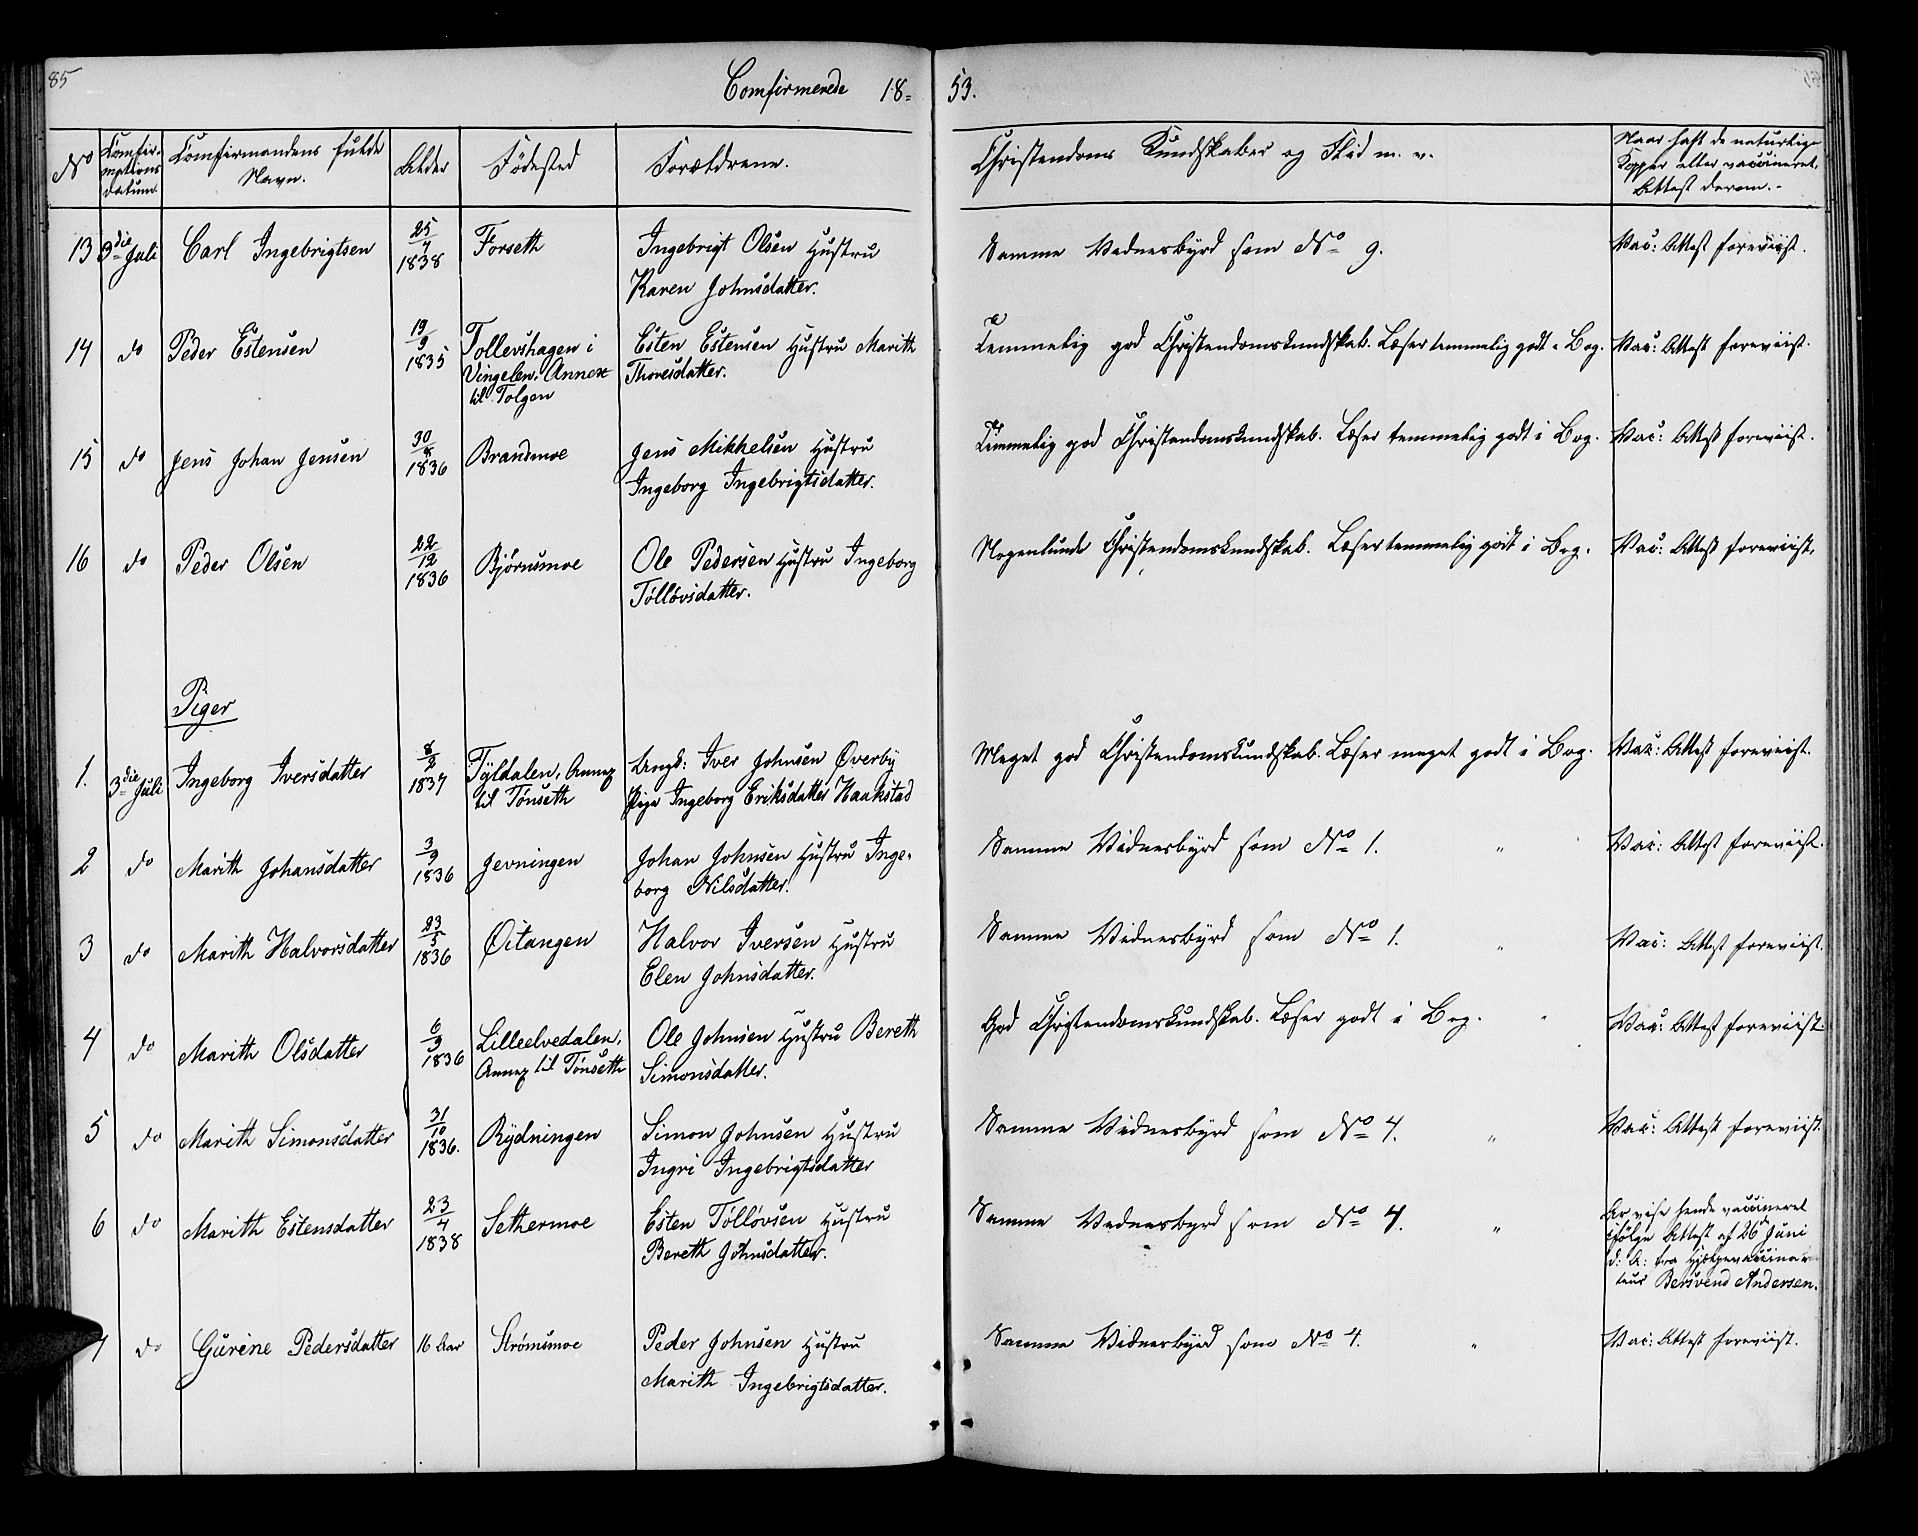 85
Comfirmerede 18=53.
No
Comfir-
mations
datum.
Comfirmandens fulde
Navn.
Alder
Fødested
Forældrene.
Christendoms Kundskaber og Flid m. v.
Naar haft de naturlige
Kopper eller vaccineret,
Attest derom.-
13 3die Juli Carl Ingebrigtsen 25/7 1838 Forseth Ingebrigt Olsen Hustru
Karen Johnsdatter.
Samme Vidnesbyrd som No 9. Vac: Attest foreviist.
14 do Peder Estensen 19/9 1835 Tollevshagen i
Vingelen, Annex
til Tolgen
Esten Estensen Hustru Marith
Thoresdatter.
Temmelig god Christendomskundskab. Læser temmelig godt i Bog. Vac: Attest foreviist.
15 do Jens Johan Jensen 30/8 1836 Brandmoe Jens Mikkelsen Hustru
Ingeborg Ingebrigtsdatter.
Temmelig god Christendomskundskab. Læser temmelig godt i Bog. Vac: Attest foreviist.
16 do Peder Olsen 22/12 1836 Bjørnsmoe Ole Pedersen Hustru Ingeborg
Tølløvsdatter.
Nogenlunde Christendomskundskab. Læser temmelig godt i Bog. Vac: Attest foreviist.
Piger
1. 3die Juli Ingeborg Iversdatter 8/2 1837 Tyldalen, Annex
til Tønseth
Ungk: Iver Johnsen Øverby
Pige Ingeborg Eriksdatter Haakstad
Meget god Christendomskundskab. Læser meget godt i Bog. Vac: Attest foreviist.
2 do Marith Johansdatter 3/9 1836 Jevningen Johan Johnsen Hustru Inge-
borg Nilsdatter.
Samme Vidnesbyrd som No 1. " Vac: Attest foreviist.
3 do Marith Halvorsdatter 23/5 1836 Øitangen Halvor Iversen Hustru
Elen Johnsdatter.
Samme Vidnesbyrd som No 1. " Vac: Attest foreviist.
4 do Marith Olsdatter 6/9 1836 Lilleelvedalen,
Annex til Tønseth
Ole Johnsen Hustru Bereth
Simonsdatter.
God Christendomskundskab. Læser godt i Bog. " Vac: Attest foreviist.
5 do Marith Simonsdatter 31/10 1836. Rydningen Simon Johnsen Hustru
Ingri Ingebrigtsdatter
Samme Vidnesbyrd som No 4. " Vac: Attest foreviist.
6 do Marith Estensdatter 23/4 1838 Sethermoe Esten Tølløvsen Hustru
Bereth Johnsdatter.
Samme Vidnesbyrd som No 4. "
hende vaccineret
ifølge Attest af 26 Juni
d: A: fra Hjelpevaccina-
teur Bersvend Andersen.
7 do Gurine Pedersdatter 16 Aar Strømsmoe Peder Johnsen Hustru
Marith Ingebrigtsdatter.
Samme Vidnesbyrd som No 4. " Vac: Attest foreviist.